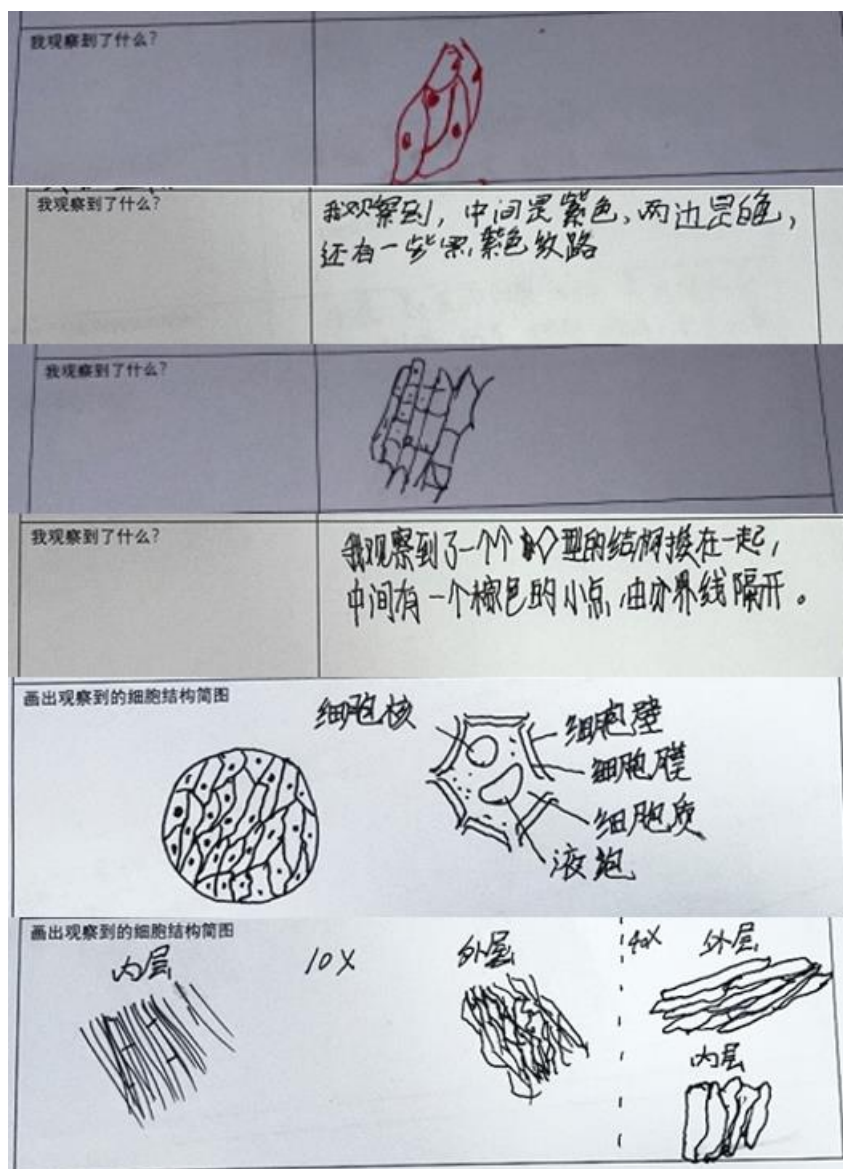 我观察到了什么?
我观察到了什么?
我观察到，中间是紫色，两边是白色，
还有一些黑紫色纹路
我观察到了什么?
我观察到了什么?
我观察到了一个个◇型的结构接在一起，
中间有一个棕色的小点，由分界线隔开。
画出观察到的细胞结构简图
细胞核
细胞壁
细胞膜
细胞质
液泡
画出观察到的细胞结构简图
内层
10X
外层
40X
外层
内层